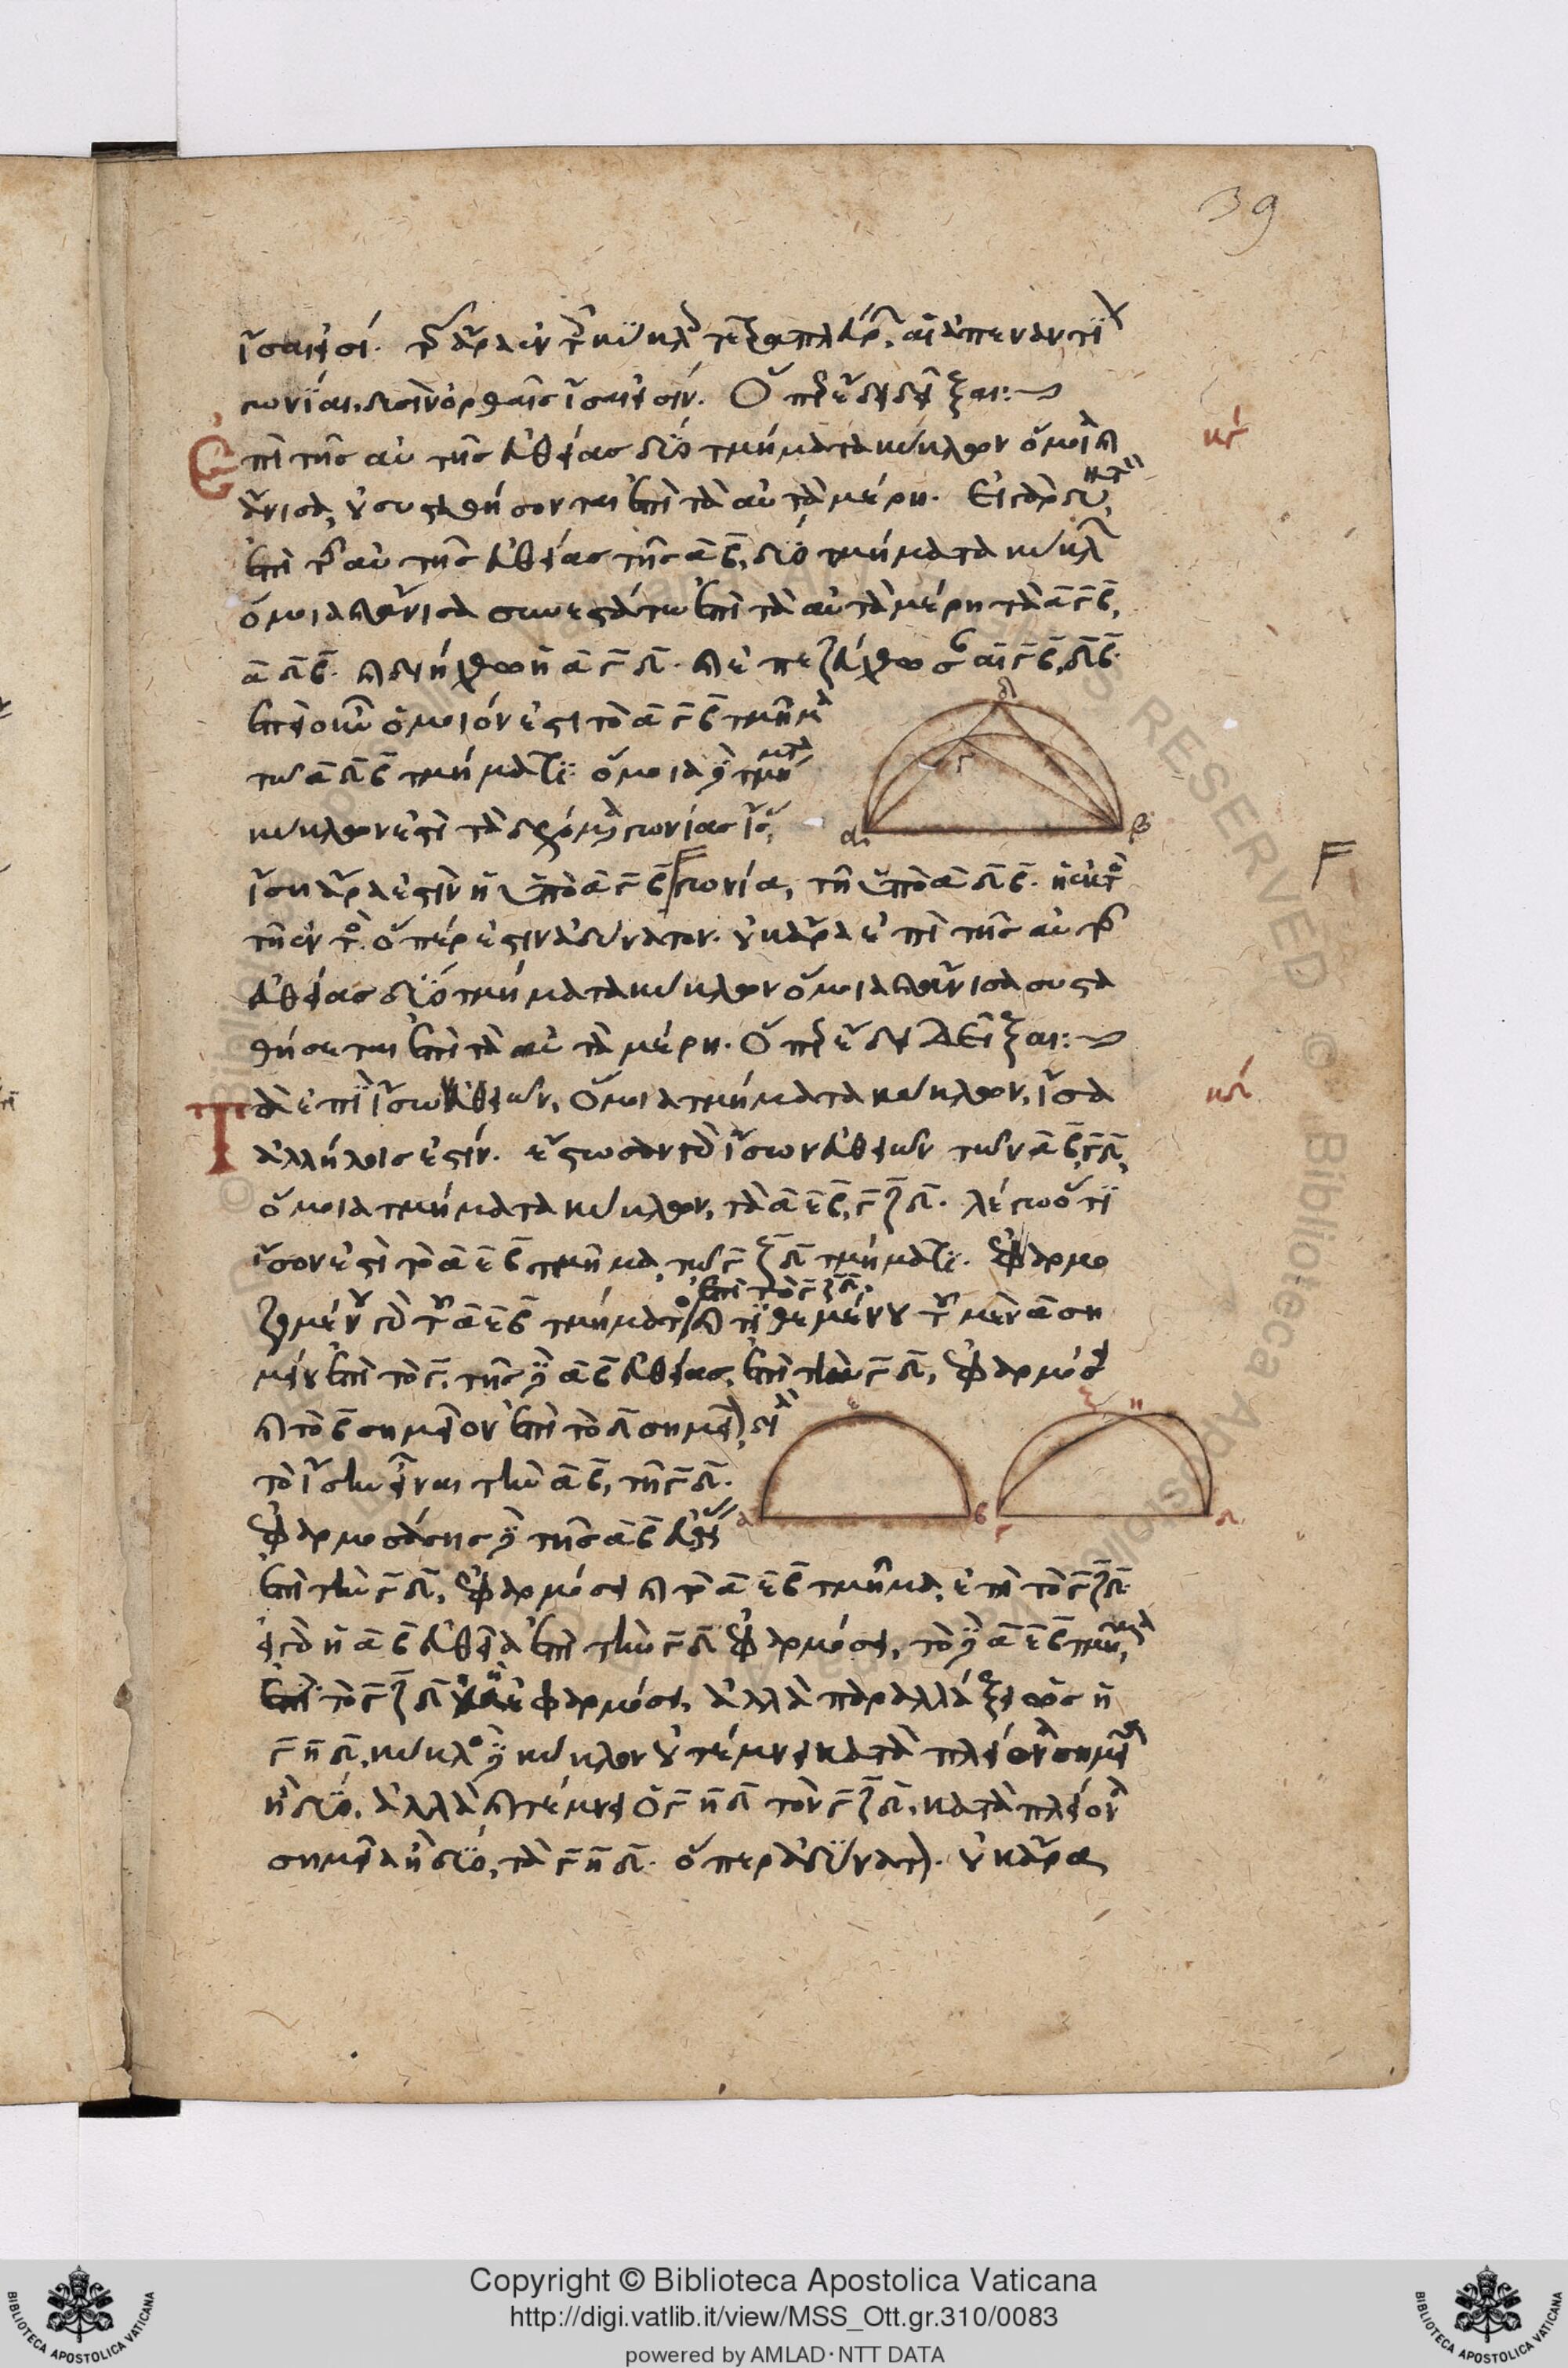 39
ἴσαι εἰσί. τῶν ἄρα ἐν τοῖς κύκλοις τετραπλεύρων, αἱ ἀπεναντίον
γωνίαι, δυσὶν ὀρθαῖς ἴσαι εἰσίν. Ὅπερ ἔδει δεῖξαι:~
Ἐπὶ τῆς αὐτῆς εὐθείας δύο τμήματα κύκλων ὅμοια καὶ
κγ
ἄνισα, οὐ συσταθήσονται ἐπὶ τὰ αὐτὰ μέρη. Εἰ γὰρ δυνατὸν,
ἐπὶ τῆς αὐτῆς εὐθείας τῆς αβ, δύο τμήματα κύκλων
ὅμοια καὶ ἄνισα συνεστάτω ἐπὶ τὰ αὐτὰ μέρη τὰ αγβ,
αδβ. καὶ διήχθω ἡ αγδ. καὶ ἐπεζεύχθωσαν αἱ γβ, δβ.
ἐπεὶ οὖν ὅμοιόν ἐστι τὸ αγβ τμῆμα
τῷ αδβ τμήματι. ὅμοια δὲ τμήματα
κύκλων ἐστὶ τὰ δεχόμενα γωνίας ἴσας,
δ
γ
α
β
ἴση ἄρα ἐστὶν ἡ ὑπὸ αγβ γωνία, τῇ ὑπὸ αδβ. ἡ ἐκτὸς
τῇ ἐντός. ὅπερ ἐστὶν ἀδύνατον. οὐκ ἄρα ἐπὶ τῆς αὐτῆς
εὐθείας δύο τμήματα κύκλων ὅμοια καὶ ἄνισα συστα
θήσεται ἐπὶ τὰ αὐτὰ μέρη. Ὅπερ ἔδει δεῖξαι:~
Τὰ ἐπὶ ἴσων εὐθειῶν, ὅμοια τμήματα κύκλων, ἴσα
κδ
ἀλλήλοις ἐστίν. ἔστωσαν γὰρ ἐπὶ ἴσων εὐθειῶν τῶν αβ, γδ,
ὅμοια τμήματα κύκλων, τὰ αεβ, γζδ. λέγω ὅτι
ἴσον ἐστὶ τὸ αεβ τμῆμα, τῷ γζδ τμήματι. Ἐφαρμο
ζομένου γὰρ τοῦ αεβ τμήματος ἐπὶ τὸ γζδ, καὶ τιθεμένου τοῦ μὲν α ση
μείου ἐπὶ τὸ γ, τῆς δὲ αβ εὐθείας, ἐπὶ τὴν γδ, ἐφαρμόσει
καὶ τὸ β σημεῖον ἐπὶ τὸ δ σημεῖον, διὰ
τὸ ἴσην εἶναι τὴν αβ, τῇ γδ.
ἐφαρμοσάσης δὲ τῆς αβ εὐθείας
ε
α
β
ζ
η
γ
δ
ἐπὶ τὴν γδ, ἐφαρμόσει καὶ τὸ αεβ τμῆμα, ἐπὶ τὸ γζδ.
εἰ γὰρ ἡ αβ εὐθεῖα ἐπὶ τὴν γδ ἐφαρμόσει, τὸ δὲ αεβ τμῆμα,
ἐπὶ τὸ γζδ μὴ ἐφαρμόσει, ἀλλὰ παραλλάξει ὡς ἡ
γηδ, κύκλος δὲ κύκλον οὐ τέμνει κατὰ πλείονα σημεῖα
ἢ δύο, ἀλλὰ καὶ τέμνει ὁ γηδ τὸν γζδ, κατὰ πλείονα
σημεῖα ἢ δύο, τὰ γηδ. ὅπερ ἀδύνατον. οὐκ ἄρα
Copyright © Biblioteca Apostolica Vaticana
http://digi.vatlib.it/view/MSS_Ott.gr.310/0083
powered by AMLAD·NTT DATA